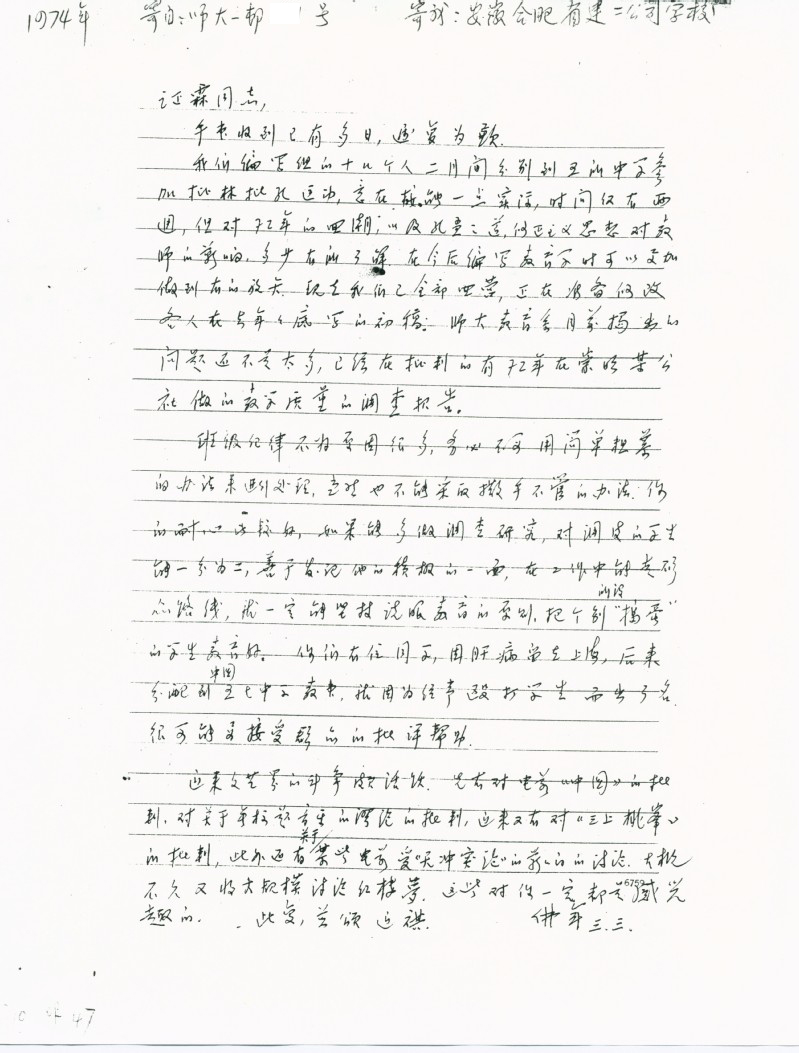 1974年 寄自:师大一邨 号 寄就:安徽合肥省建二公司学校
证霖同志,
手书收到已有多日,迟复为歉.
我们编写组的十几个人二月间分别到五所中学参
加批林批孔运动,意在接触一点实际,时间仅有两
週,但对72年的回潮,以及孔孟之道,修正主义思想对教
师的影响,多少有所了解.在今后编写教育学时可以更加
做到有的放矢.现在我们已全部回营,正在准备修改
各人在去年年底写的初稿。师大教育系目前揭出的
问题还不是太多,已经在批判的有72年在崇明某公
社做的教学质量的调查报告。
班级纪律不好原因很多,务必不可用简单粗暴
的办法来进行处理,当然也不能采取撒手不管的办法.你
的耐心比较好,如果能多做调查研究,对调皮的学生
能一分为二,善于发现他的积极的一面,在工作中能走群
众路线,就一定能坚持说服教育的原则.把个别所谓“捣蛋”
的学生教育好。你们有位同学,因肝病留在上海,后来
分配到五七中学教中国,就因为经常殴打学生而出了名
很可能要接受群众的批评帮助.
近来文艺界的斗争颇活跃.先有对电影《中国》的批
判,对关于无标题音乐的谬论的批判,近来又有对《三上桃峰》
的批判,此外还有关于某些电影受“无冲突论”的影响的讨论.大概
不久又将大规模讨论红楼梦.这些对你一定都是感兴
趣的. 此复,并颂 近祺.
佛年 三.三.
6759
47